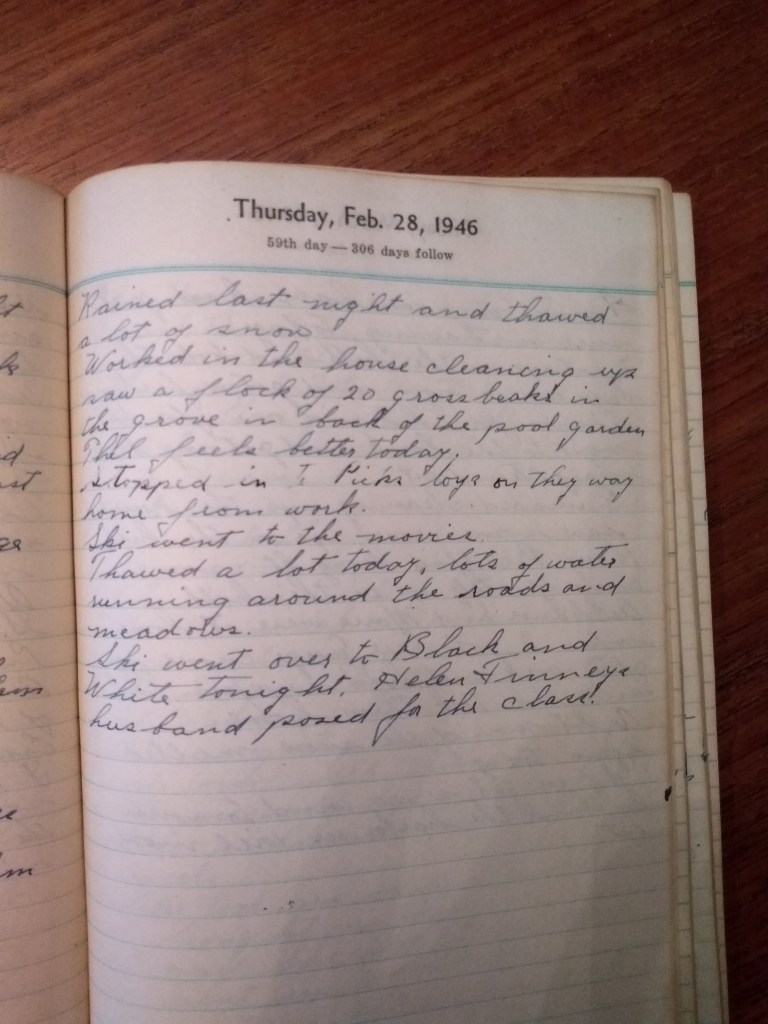 Thursday, Feb. 28, 1946
59th day — 306 days follow
Rained last night and thawed
a lot of snow
Worked in the house cleaning up
saw a flock of 20 grossbeaks in
the grove in back of the pool garden
Phil feels better today.
Stopped in on they way
home from work.
Ski went to the movies.
Thawed a lot today, lots of water
running around the roads and
meadows.
Ski went over to Black and
White tonight. Helen Finneys
husband posed for the class.